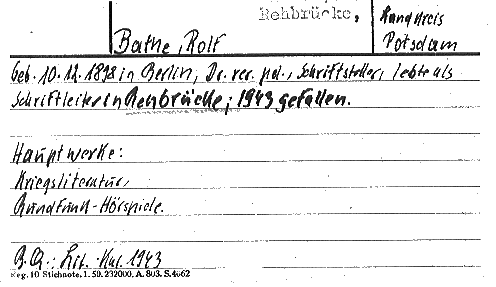 Rehbrücke,
Landkreis
Potsdam
Bathe, Rolf
Geb. 10.12.1898 in Berlin, Dr. rer. pol., Schriftsteller, lebte als
Schriftleiter in Rehbrücke; 1943 gefallen.
Hauptwerke:
Kriegsliteratur,
Rundfunk-Hörspiele.
B.Q.: Lit. Kal. 1943
Reg. 10 Stichnote. 1. 50. 232000. A. 803. S. 4662